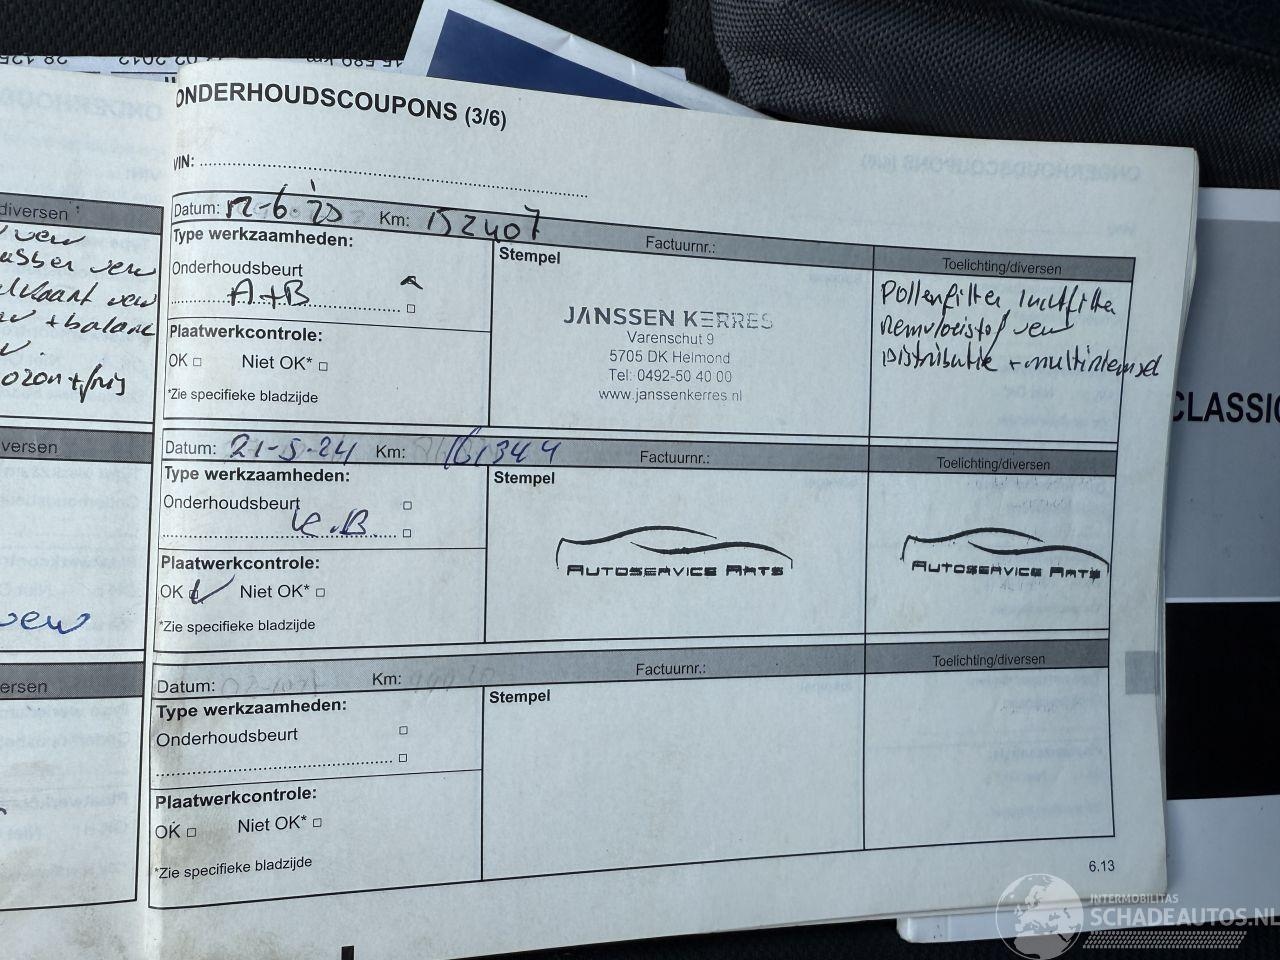 15 589 km
02 2012
28 125
ONDERHOUDSCOUPONS (3/6)
VIN:
diversen
vew
vew
lkaart vew
+ balans
ozon + fris
versen
vew
ersen
Datum: 12-6-'20 Km: 152407 Factuurnr.:
Type werkzaamheden:
Onderhoudsbeurt
A+B
Plaatwerkcontrole:
OK □ Niet OK* □
*Zie specifieke bladzijde
Stempel
JANSSEN KERRES
Varenschut 9
5705 DK Helmond
Tel: 0492-50 40 00
www.janssenkerres.nl
Toelichting/diversen
Pollenfilter luchtfilter
Remvloeistof vew
Distributie + multiriemsel
Datum: 21-5-24 Km: 161344 Factuurnr.:
Type werkzaamheden:
Onderhoudsbeurt □
K.B. □
Plaatwerkcontrole:
OK ✓ Niet OK* □
*Zie specifieke bladzijde
Stempel
AUTOSERVICE ARTS
Toelichting/diversen
AUTOSERVICE ARTS
Datum: Km: Factuurnr.:
Type werkzaamheden:
Onderhoudsbeurt □
□
Plaatwerkcontrole:
OK □ Niet OK* □
*Zie specifieke bladzijde
Stempel
Toelichting/diversen
6.13
CLASSIC
INTERMOBILITAS
SCHADEAUTOS.NL